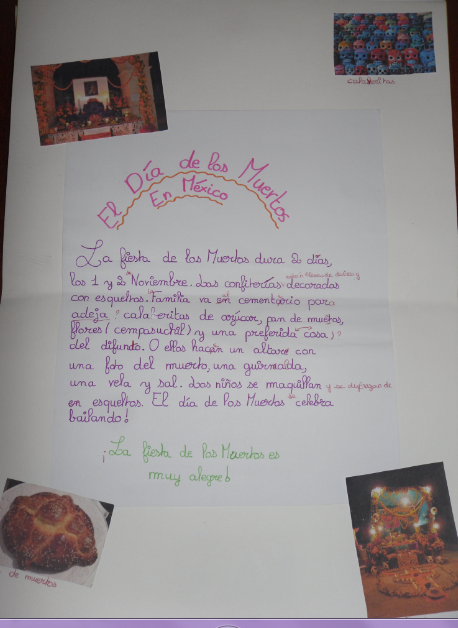 calaveritas
El Día de los Muertos
En México
La fiesta de los Muertos dura 2 días,
los 1 y 2 Noviembre. Las confiterías decoradas
con esqueltos. Familia va en cementerio para
adeja ? calaveritas de azúcar, pan de muetos,
flores (cempasuchil) y una preferida cosa, ?
del difunto. O ellos hacen un altare con
una foto del muerto, una guirnalda,
una vela y sal. Los niños se maquillan y se disfrazan de
en esqueltos. El día de los Muertos se celebra
bailando!
¡La fiesta de los Muertos es
muy alegre!
de muertos